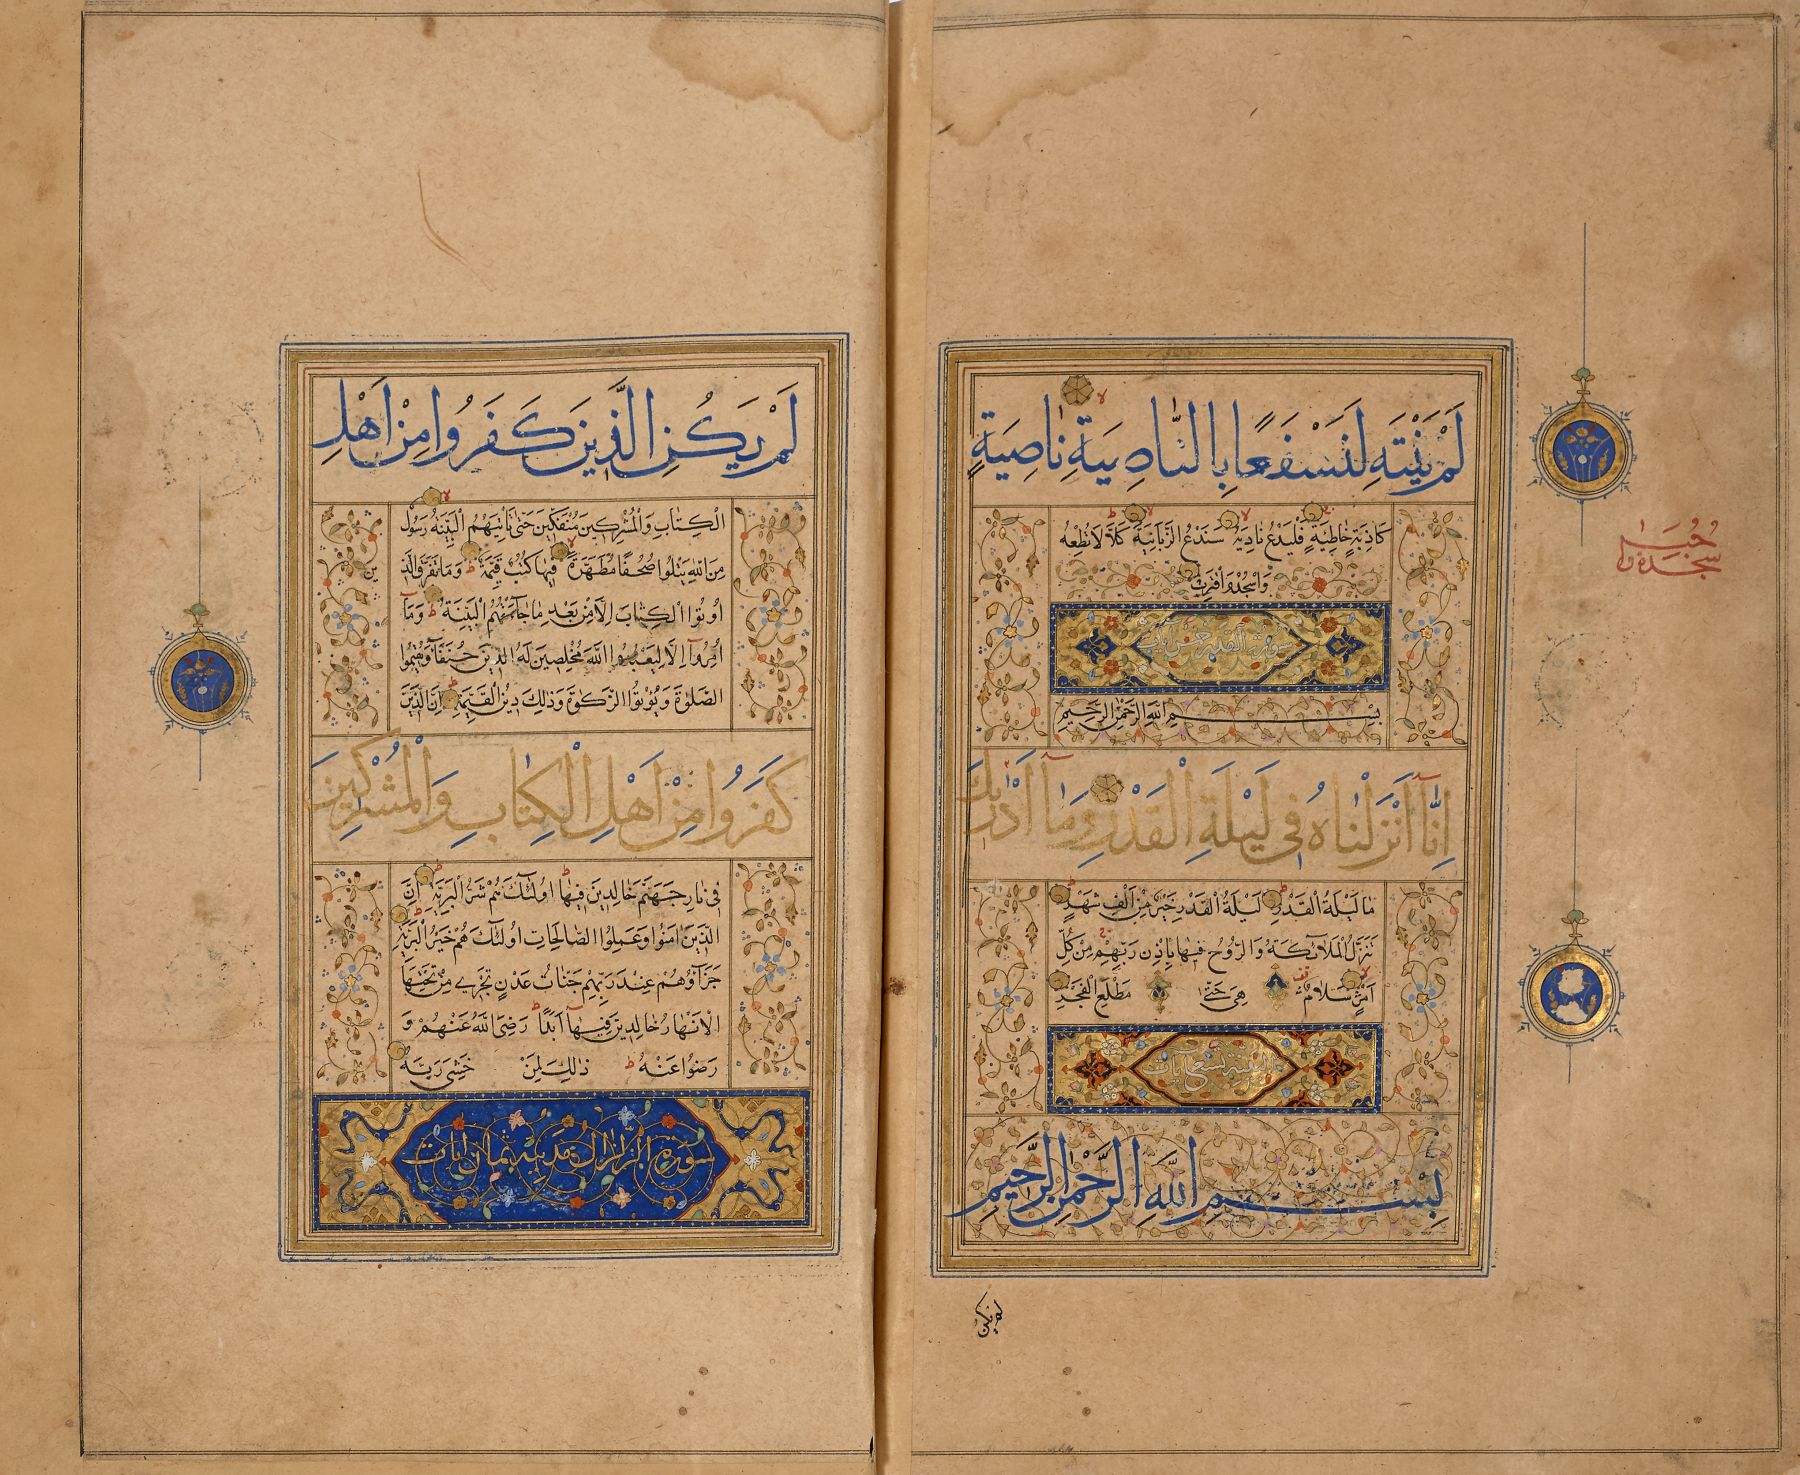 لَمْ يَنْتَهِ لَنَسْفَعًا بِالنَّاصِيَةِ نَاصِيَةٍ
كَاذِبَةٍ خَاطِئَةٍ فَلْيَدْعُ نَادِيَهُ سَنَدْعُ الزَّبَانِيَةَ كَلَّا لَا تُطِعْهُ
وَاسْجُدْ وَاقْتَرِبْ
سورة القدر خمس آيات
بِسْمِ اللَّهِ الرَّحْمٰنِ الرَّحِيمِ
اِنَّا اَنْزَلْنَاهُ فِي لَيْلَةِ الْقَدْرِ وَمَا اَدْرٰيكَ
مَا لَيْلَةُ الْقَدْرِ لَيْلَةُ الْقَدْرِ خَيْرٌ مِنْ اَلْفِ شَهْرٍ
تَنَزَّلُ الْمَلَائِكَةُ وَالرُّوحُ فِيهَا بِإِذْنِ رَبِّهِمْ مِنْ كُلِّ
اَمْرٍ سَلَامٌ هِيَ حَتّٰى مَطْلَعِ الْفَجْرِ
البينة تسع آيات
بِسْمِ اللَّهِ الرَّحْمٰنِ الرَّحِيمِ
لم يكن
سجده
لَمْ يَكُنِ الَّذِينَ كَفَرُوا مِنْ اَهْلِ
الْكِتَابِ وَالْمُشْرِكِينَ مُنْفَكِّينَ حَتّٰى تَأْتِيَهُمُ الْبَيِّنَةُ رَسُولٌ
مِنَ اللَّهِ يَتْلُوا صُحُفًا مُطَهَّرَةً فِيهَا كُتُبٌ قَيِّمَةٌ وَمَا تَفَرَّقَ الَّذ
ين
اُوتُوا الْكِتَابَ اِلَّا مِنْ بَعْدِ مَا جَاءَتْهُمُ الْبَيِّنَةُ وَمَا
اُمِرُوا اِلَّا لِيَعْبُدُوا اللَّهَ مُخْلِصِينَ لَهُ الدِّينَ حُنَفَاءَ وَيُقِيمُوا
الصَّلٰوةَ وَيُؤْتُوا الزَّكٰوةَ وَذٰلِكَ دِينُ الْقَيِّمَةِ اِنَّ الَّذِينَ
كَفَرُوا مِنْ اَهْلِ الْكِتَابِ وَالْمُشْرِكِينَ
فِي نَارِ جَهَنَّمَ خَالِدِينَ فِيهَا اُولٰئِكَ هُمْ شَرُّ الْبَرِيَّةِ اِنَّ
الَّذِينَ اٰمَنُوا وَعَمِلُوا الصَّالِحَاتِ اُولٰئِكَ هُمْ خَيْرُ الْبَرِيَّةِ
جَزَاؤُهُمْ عِنْدَ رَبِّهِمْ جَنَّاتُ عَدْنٍ تَجْرِي مِنْ تَحْتِهَا
الْاَنْهَارُ خَالِدِينَ فِيهَا اَبَدًا رَضِيَ اللَّهُ عَنْهُمْ وَ
رَضُوا عَنْهُ ذٰلِكَ لِمَنْ خَشِيَ رَبَّهُ
سورة الزلزال مدنية ثمان آيات